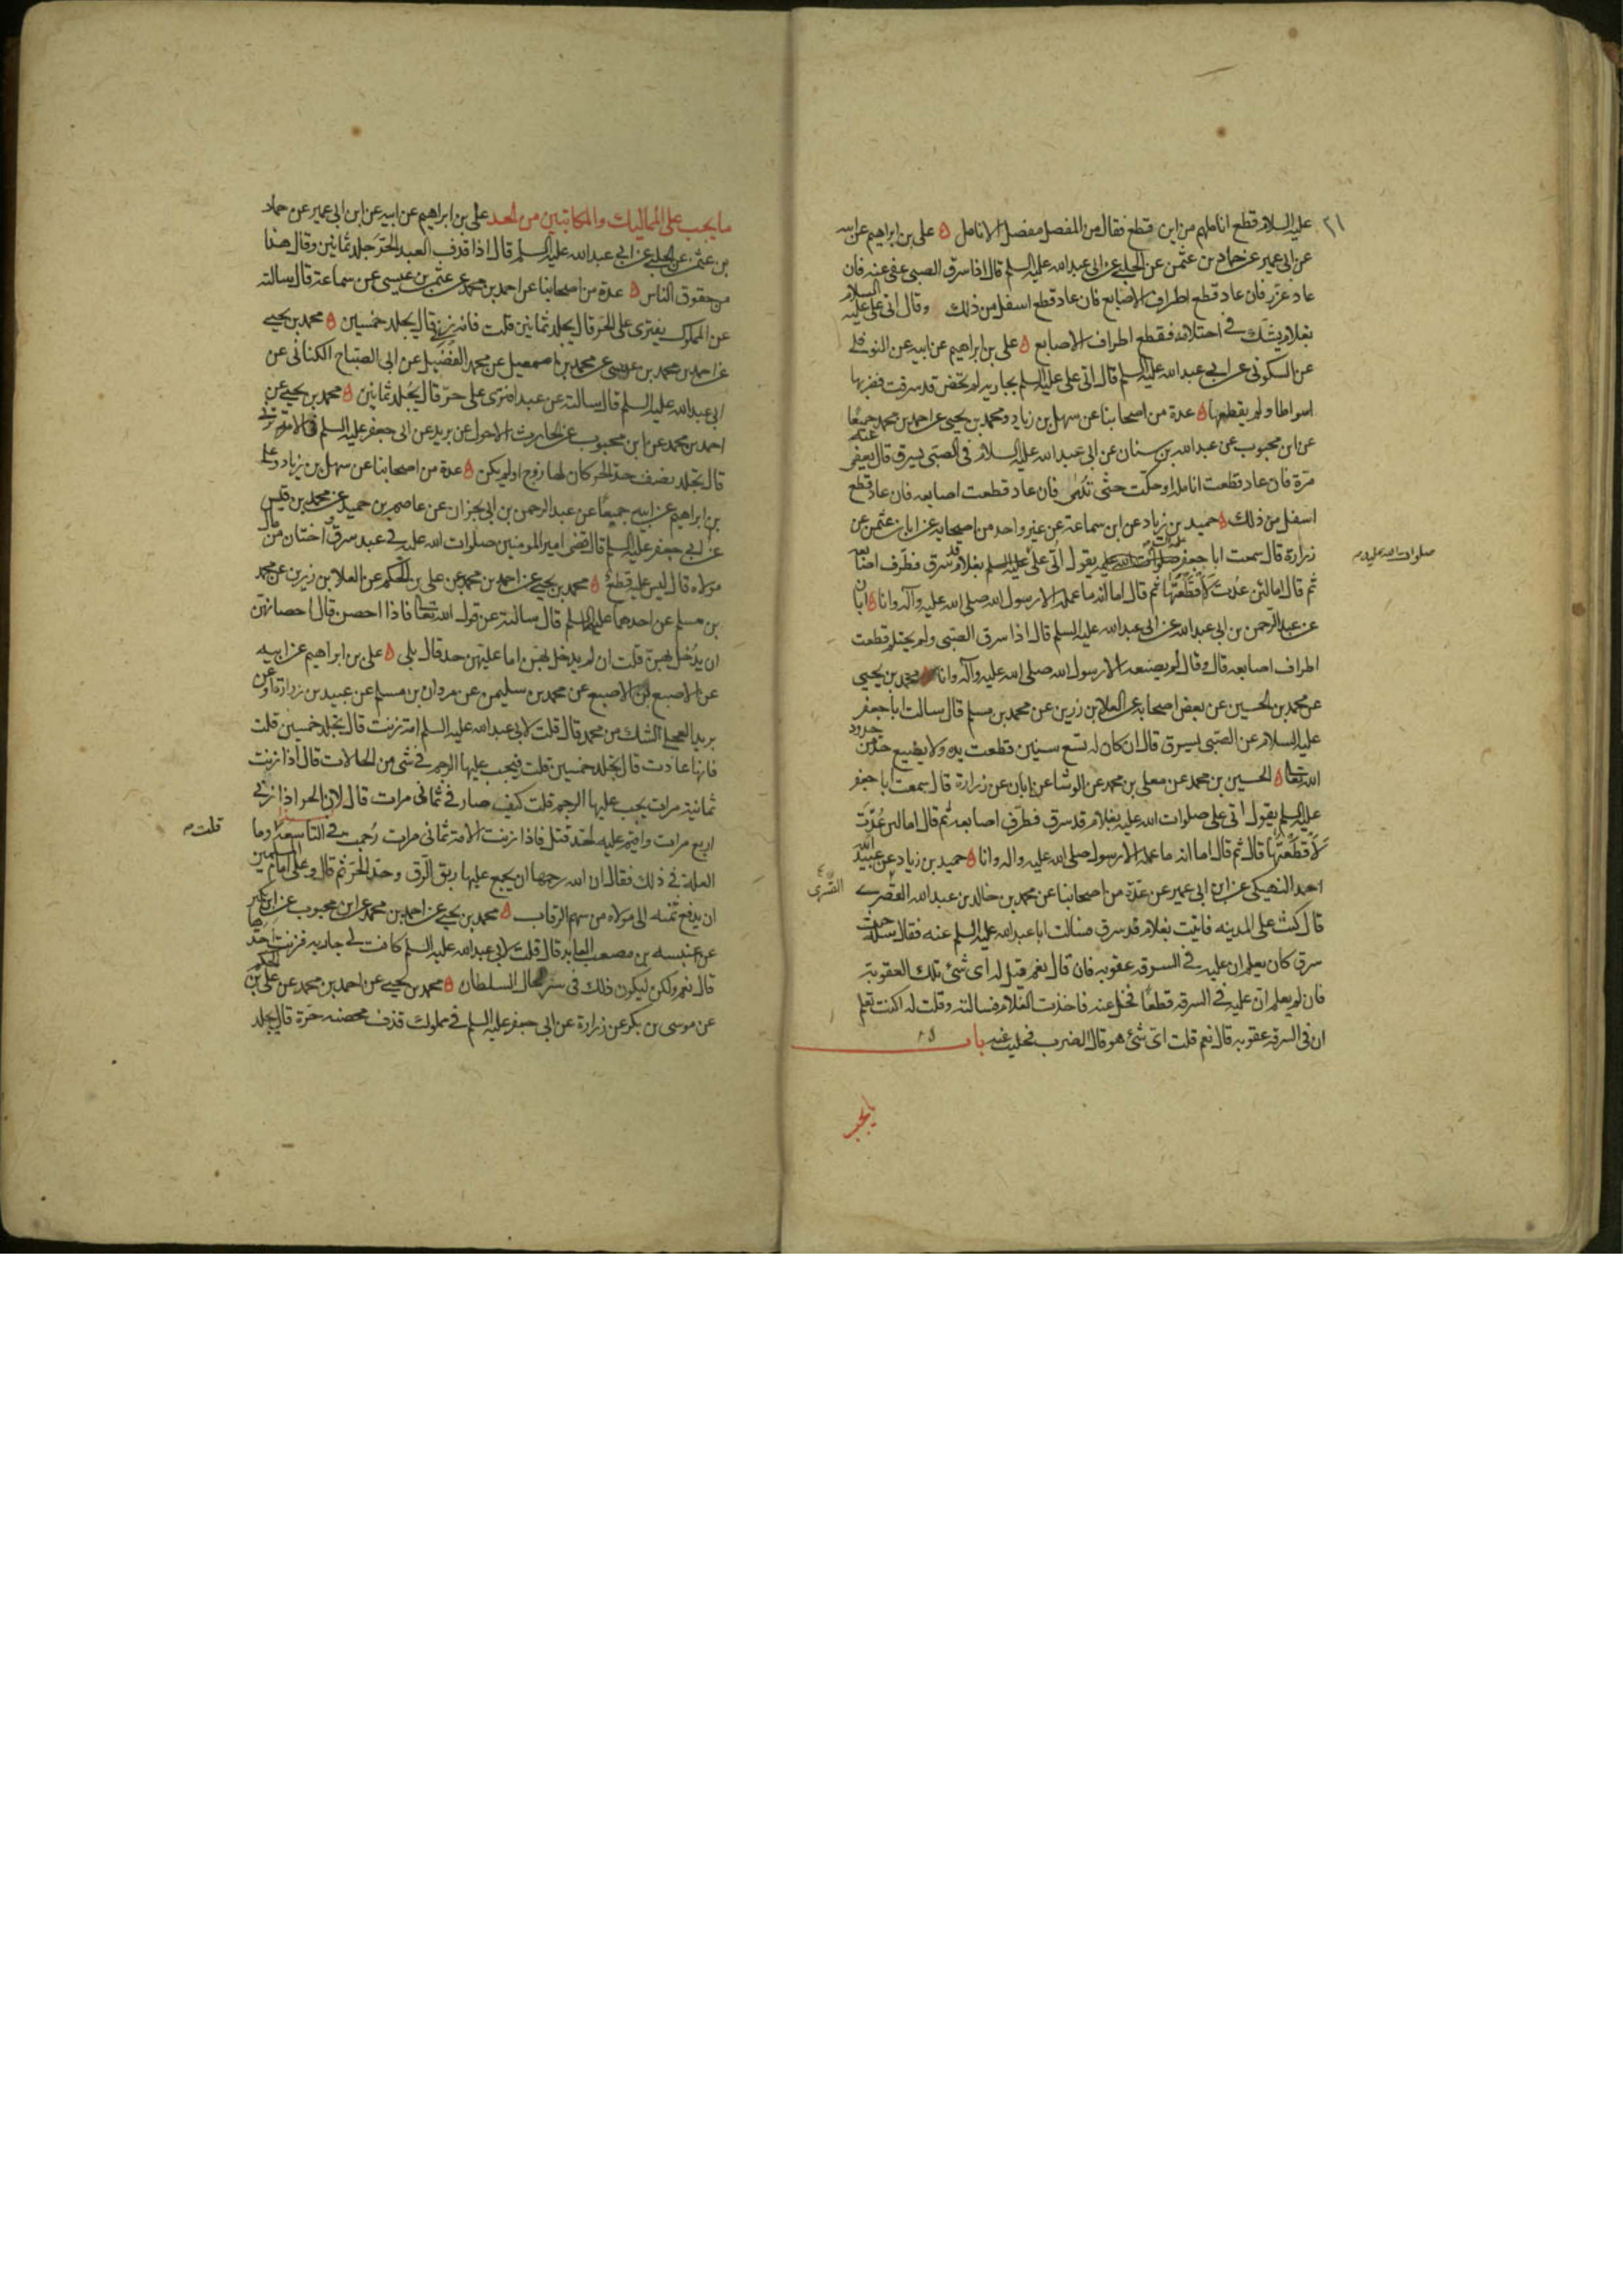 عليه السلام قطع اناملهم من اين قطع فقال من المفصل مفصل الانامل ه علي بن ابراهيم عن ابيه
عن ابن ابي عمير عن حماد بن عثمن عن الحلبي عن ابي عبد الله عليه السلم قال اذا سرق الصبي عفي عنه فان
عاد عزر فان عاد قطع اطراف الاصابع فان عاد قطع اسفل من ذلك وقال اتي علي عليه السلام
بغلام يشك في احتلامه فقطع اطراف الاصابع ه علي بن ابراهيم عن ابيه عن النوفلي
عن السكوني عن ابي عبد الله عليه السلم قال اتي علي عليه السلم بجارية لم تحض قد سرقت فضربها
اسواطا ولم يقطعها ه عدة من اصحابنا عن سهل بن زياد ومحمد بن يحيى عن احمد بن محمد جميعا
عن ابن محبوب عن عبد الله بن سنان عن ابي عبد الله عليه السلام في الصبي يسرق قال يعفى عنه
مرة فان عاد قطعت انامله او حكت حتى تدمى فان عاد قطعت اصابعه فان عاد قطع
اسفل من ذلك ه حميد بن زياد عن ابن سماعة عن غير واحد من اصحابه عن ابان بن عثمن عن
زرارة قال سمعت ابا جعفر يقول اتي علي عليه السلم بغلام قد سرق فطرف اصابعه
صلوات الله عليه م
ثم قال اما لئن عدت لاقطعنها ثم قال اما انه ما عمله الا رسول الله صلى الله عليه وآله وانا ه ابان
عن عبد الرحمن بن ابي عبد الله عن ابي عبد الله عليه السلم قال اذا سرق الصبي ولم يحتلم قطعت
اطراف اصابعه قال وقال لم يصنعه الا رسول الله صلى الله عليه وآله وانا ه محمد بن يحيى
عن محمد بن الحسين عن بعض اصحابه عن العلا بن رزين عن محمد بن مسلم قال سالت ابا جعفر
عليه السلام عن الصبي يسرق قال ان كان له تسع سنين قطعت يده ولا يضيع حد من حدود
الله تعا ه الحسين بن محمد عن معلى بن محمد عن الوشا عن ابان عن زرارة قال سمعت ابا جعفر
عليه السلم يقول اتي علي صلوات الله عليه بغلام قد سرق فطرف اصابعه ثم قال اما لئن عدت
لاقطعنها قال ثم قال اما انه ما عمله الا رسول صلى الله عليه واله وانا ه حميد بن زياد عن عبيد الله
احمد النهيكي عن ابن ابي عمير عن عدة من اصحابنا عن محمد بن خالد بن عبد الله القصري
القسري
قال كنت على المدينه فاتيت بغلام قد سرق فسالت ابا عبد الله عليه السلم عنه فقال سله حيث
سرق كان يعلم ان عليه في السرقه عقوبه فان قال نعم قيل له اى شئ تلك العقوبة
فان لم يعلم ان عليه في السرقه قطعا فخل عنه فاخذت الغلام فسالته وقلت له اكنت تعلم
ان في السرقه عقوبه قال نعم قلت اى شئ هو قال الضرب فخليت عنه باب
ما يجب
ما يجب على المماليك والمكاتبين من الحد علي بن ابراهيم عن ابيه عن ابن ابي عمير عن حماد
بن عثمن عن الحلبي عن ابي عبد الله عليه السلم قال اذا قذف العبد الحر جلد ثمانين وقال هذا
من حقوق الناس ه عدة من اصحابنا عن احمد بن محمد عن عثمن بن عيسى عن سماعة قال سالته
عن المملوك يفترى على الحر قال يجلد ثمانين قلت فانه زنى قال يجلد خمسين ه محمد بن يحيى
عن احمد بن محمد بن عيسى عن محمد بن اسمعيل عن محمد الفضيل عن ابي الصباح الكناني عن
ابي عبد الله عليه السلم قال سالته عن عبد افترى على حر قال يجلد ثمانين ه محمد بن يحيى عن
احمد بن محمد عن ابن محبوب عن الحارث الاحول عن بريد عن ابي جعفر عليه السلم في الامة تزني
قال تجلد نصف حد الحر كان لها زوج او لم يكن ه عدة من اصحابنا عن سهل بن زياد وعلي
بن ابراهيم عن ابيه جميعا عن عبد الرحمن بن ابي نجران عن عاصم بن حميد عن محمد بن قيس
عن ابي جعفر عليه السلم قال قضى امير المومنين صلوات الله عليه في عبد سرق واختان من مال
مولاه قال ليس عليه قطع ه محمد بن يحيى عن احمد بن محمد عن علي بن الحكم عن العلا بن رزين عن محمد
بن مسلم عن احدهما عليهما السلم قال سالته عن قول الله تعا فاذا احصن قال احصانهن
ان يدخل بهن قلت ان لم يدخل بهن اما عليهن حد قال بلى ه علي بن ابراهيم عن ابيه
عن الاصبغ بن الاصبغ عن محمد بن سليمن عن مروان بن مسلم عن عبيد بن زرارة او عن
بريد العجلي الشك من محمد قال قلت لابي عبد الله عليه السلم امة زنت قال تجلد خمسين قلت
فانها عادت قال تجلد خمسين قلت فيجب عليها الرجم في شئ من الحالات قال اذا زنت
ثمانية مرات يجب عليها الرجم قلت كيف صار في ثماني مرات قال لان الحر اذا زنى
اربع مرات واقيم عليه الحد قتل فاذا زنت الامة ثماني مرات رجمت في التاسعة وما
قلت م
العلة في ذلك فقال ان الله رحمها ان يجمع عليها ربق الرق وحد الحر ثم قال وعلى امام المسلمين
ان يدفع ثمنه الى مولاه من سهم الرقاب ه محمد بن يحيى عن احمد بن محمد عن ابن محبوب عن ابن بكير
عن عنبسه بن مصعب العابد قال قلت لابي عبد الله عليه السلم كانت لي جاريه فزنت احدها
قال نعم ولكن ليكون ذلك في سر لحال السلطان ه محمد بن يحيى عن احمد بن محمد عن علي بن الحكم
عن موسى بن بكر عن زرارة عن ابي جعفر عليه السلم في مملوك قذف محصنه حرة قال يجلد